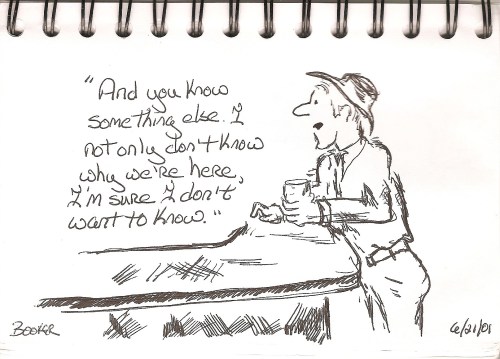 "And you know
something else. I
not only don't know
why we're here,
I'm sure I don't
want to know."
Booker
6/21/01